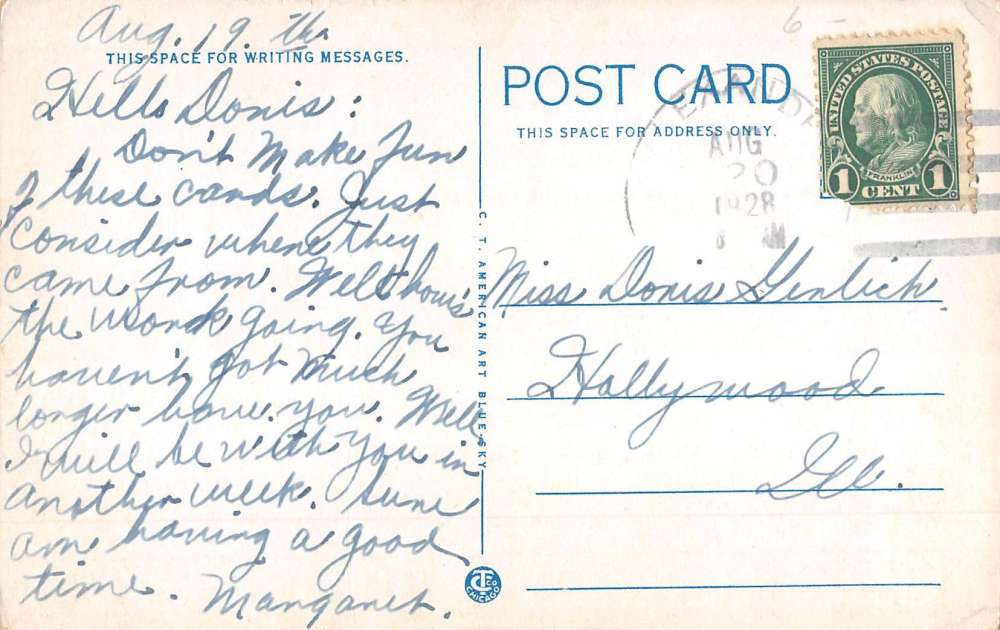 Aug. 19. th
THIS SPACE FOR WRITING MESSAGES.
Hello Doris:
Don't Make fun
of these cards. Just
consider where they
came from. Well how's
the work going. You
haven't got much
longer have you. Well
I will be with you in
another week. Sure
am having a good
time. Margaret.
C. T. AMERICAN ART BLUE SKY
CT CO
CHICAGO
6 -
POST CARD
THIS SPACE FOR ADDRESS ONLY.
AUG
20
1928
AM
UNITED STATES POSTAGE
FRANKLIN
1 CENT 1
Miss Doris
Hollywood
Ill.